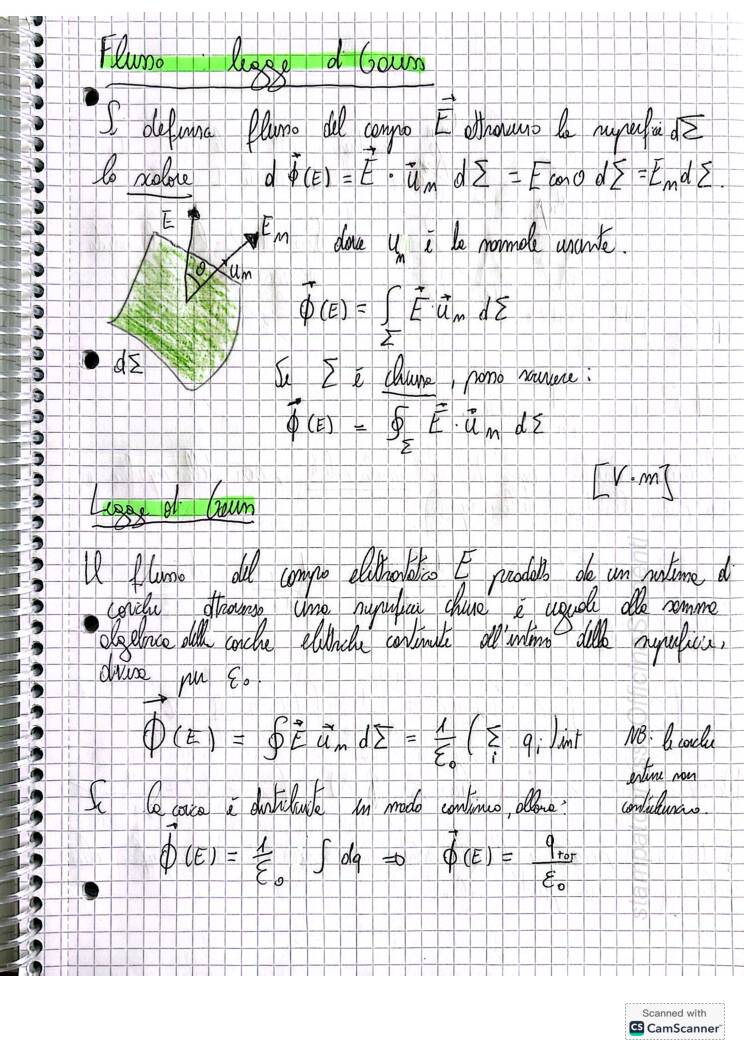 Flusso : legge di Gauss
Si definisce flusso del campo E⃗ attraverso la superficie dΣ
lo scalare d Φ⃗(E) = E⃗ · u⃗ₙ dΣ = E cosθ dΣ = Eₙ dΣ.
E Eₙ
θ uₙ
dove uₙ è la normale uscente.
Φ⃗(E) = ∫_Σ E⃗ · u⃗ₙ dΣ
dΣ
Se Σ è chiusa, posso scrivere:
Φ⃗(E) = ∮_Σ E⃗ · u⃗ₙ dΣ
[V·m]
Legge di Gauss
Il flusso del campo elettrostatico E prodotto da un sistema di
cariche attraverso una superficie chiusa è uguale alla somma
algebrica delle cariche elettriche contenute all'interno della superficie,
divisa per ε₀.
Φ⃗(E) = ∮ E⃗ u⃗ₙ dΣ = 1/ε₀ (∑_i qᵢ)int
NB: le cariche
esterne non
contribuiscono.
Se la carica è distribuita in modo continuo, allora:
Φ⃗(E) = 1/ε₀ ∫ dq ⇒ Φ⃗(E) = q_TOT/ε₀
Scanned with
CS CamScanner